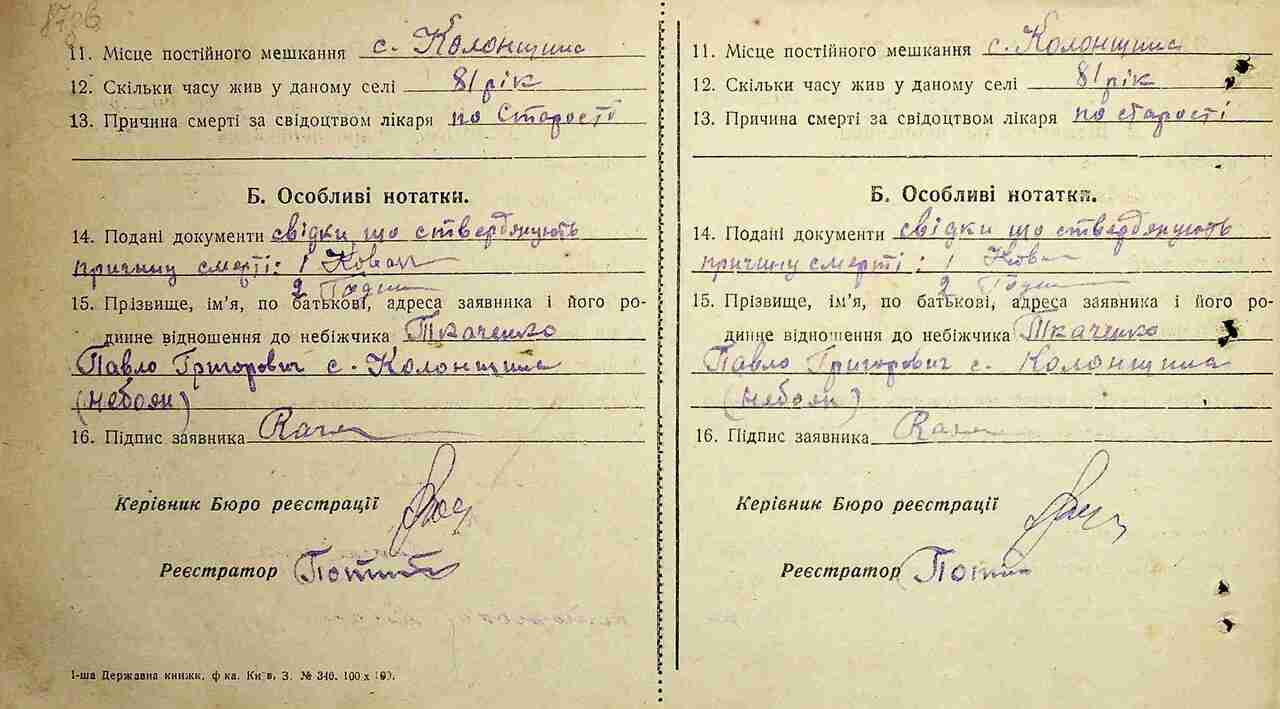 87зв
11. Місце постійного мешкання с. Колонщина
12. Скільки часу жив у даному селі 81 рік
13. Причина смерті за свідоцтвом лікаря по старості
Б. Особливі нотатки.
14. Подані документи свідки, що стверджують
причину смерті: 1 Ковал
2
15. Прізвище, ім’я, по батькові, адреса заявника і його ро-
динне відношення до небіжчика Ткаченко
Павло Григорович с. Колонщина
(небояк)
16. Підпис заявника
Керівник Бюро реєстрації
Реєстратор
1-ша Державна книжк. ф-ка. Київ, З. № 346. 100 х 100.
11. Місце постійного мешкання с. Колонщина
12. Скільки часу жив у даному селі 81 рік
13. Причина смерті за свідоцтвом лікаря по старості
Б. Особливі нотатки.
14. Подані документи свідки що стверджують
причину смерті: 1 Ковал
2
15. Прізвище, ім’я, по батькові, адреса заявника і його ро-
динне відношення до небіжчика Ткаченко
Павло Григорович с. Колонщина
(небояк)
16. Підпис заявника
Керівник Бюро реєстрації
Реєстратор